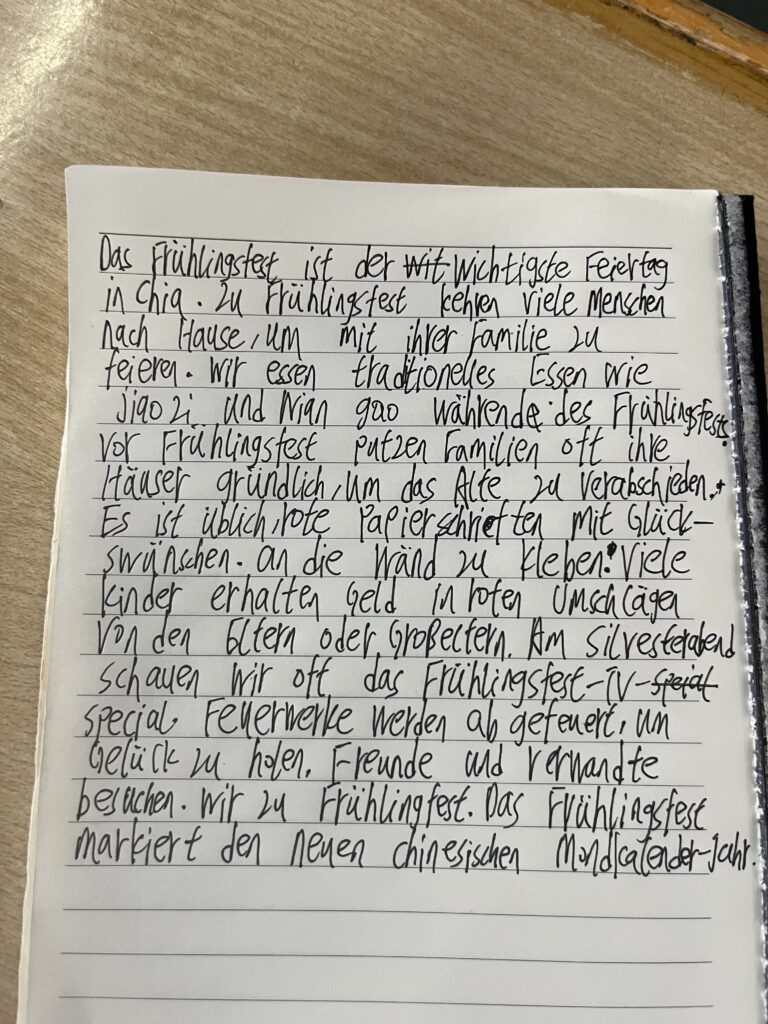 Das Frühlingsfest ist der wit wichtigste Feiertag
in Chia. Zu Frühlingsfest kehren viele Menschen
nach Hause, um mit ihrer Familie zu
feieren. Wir essen traditionelles Essen wie
Jiao zi und Nian gao während des Frühlingsfest.
vor Frühlingsfest putzen Familien oft ihre
Häuser gründlich, um das Alte zu verabschieden.
Es ist üblich, rote Papierschrieften mit Glück-
swünschen. an die Wänd zu kleben. Viele
kinder erhalten Geld in roten Umschlägen
von den Eltern oder Großeltern. Am Silvesterabend
schauen wir oft das Frühlingsfest-TV-speial
special. Feuerwerke werden ab gefeuert, um
Gelück zu holen. Freunde und verwandte
besuchen. wir zu Frühlingfest. Das Frühlingsfest
markiert den neuen chinesischen Mondkalender-Jahr.